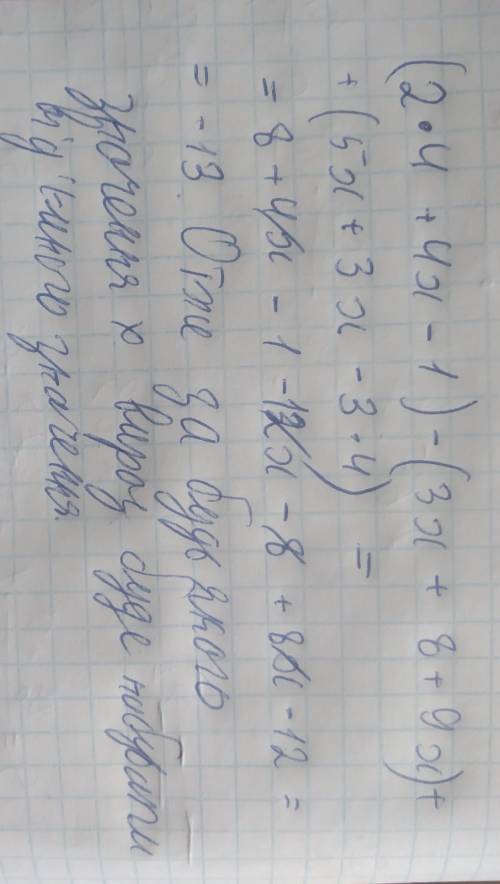 (2·4 + 4x - 1) - (3x + 8 + 9x) +
+ (5x + 3x - 3·4) =
= 8 + 4x - 1 - 12x - 8 + 8x - 12 =
= -13. Отже за будь якого
значення x вираз буде набувати
від'ємного значення.